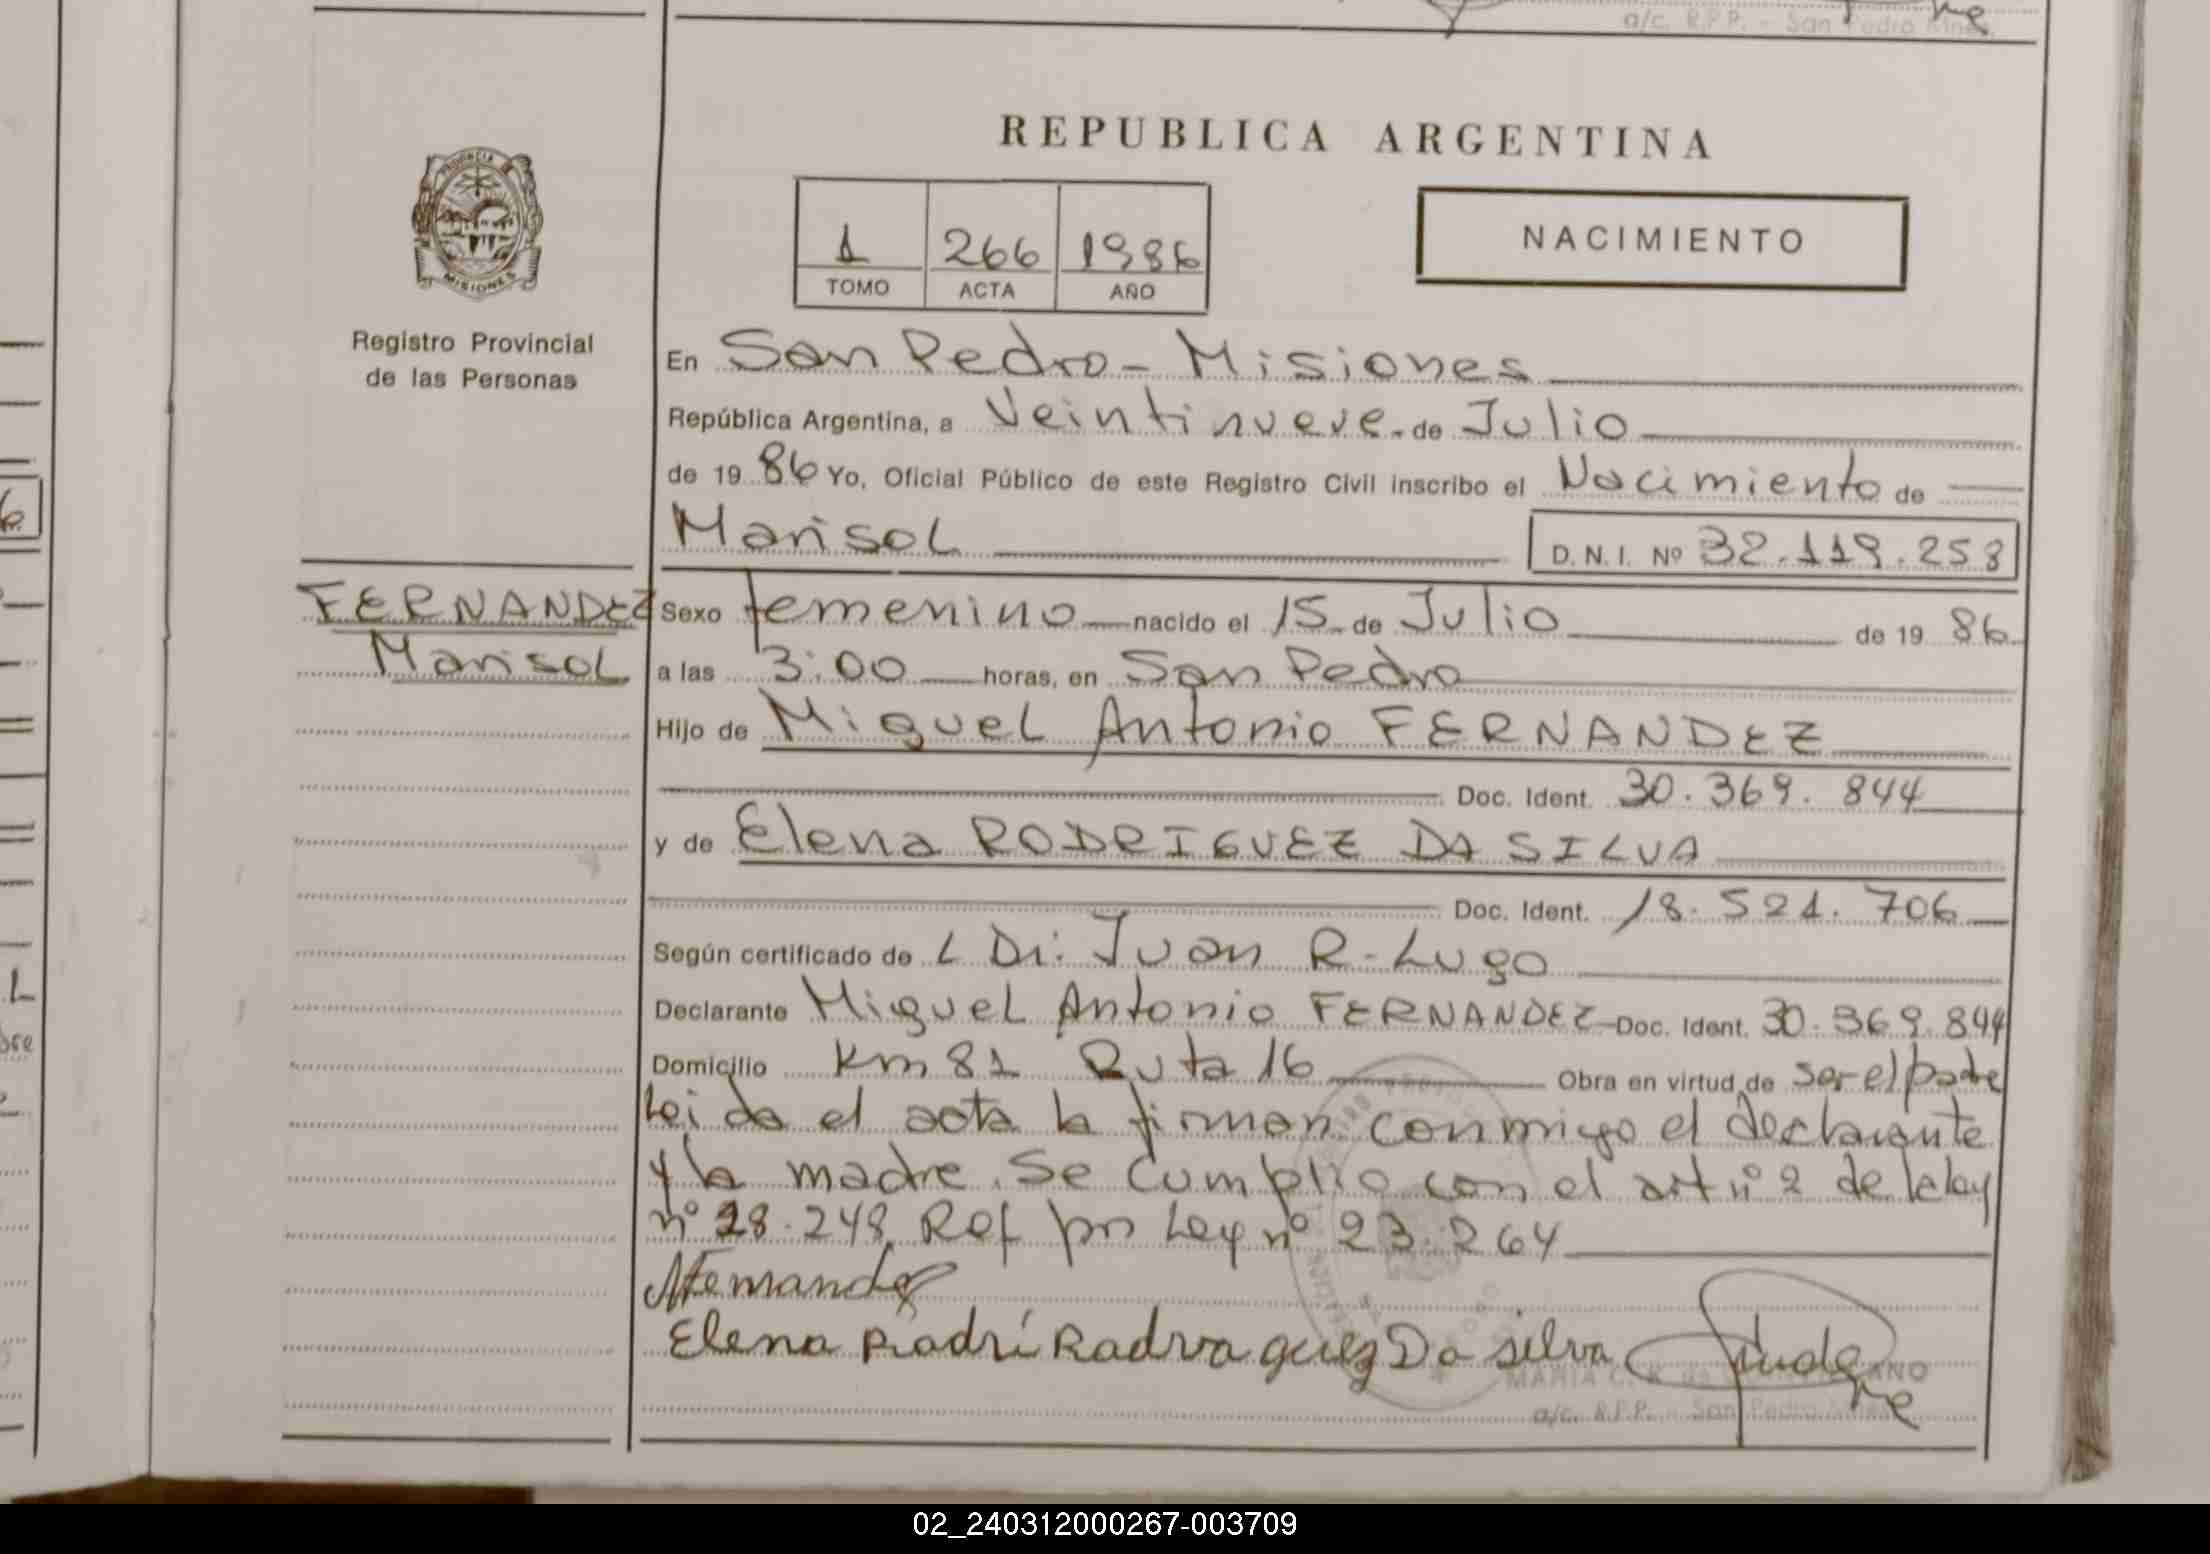 a/c. R.P.P. - San Pedro Mnes.
REPUBLICA ARGENTINA
PROVINCIA
MISIONES
1 266 1986
TOMO ACTA AÑO
NACIMIENTO
Registro Provincial
de las Personas
En San Pedro - Misiones
República Argentina, a Veintinueve - de Julio
de 19 86 Yo, Oficial Público de este Registro Civil inscribo el Nacimiento de
Marisol D. N. I. Nº 32.119.258
FERNANDEZ
Marisol
Sexo femenino nacido el 15 de Julio de 19 86
a las 3:00 horas, en San Pedro
Hijo de Miguel Antonio FERNANDEZ
Doc. Ident. 30.369.844
y de Elena RODRIGUEZ DA SILVA
Doc. Ident. 18.521.706
Según certificado de L Dr. Juan R. Lugo
Declarante Miguel Antonio FERNANDEZ Doc. Ident. 30.369.844
Domicilio Km 81 Ruta 16 Obra en virtud de ser el padre
Leida el acta la firman conmigo el declarante
y la madre. Se cumplio con el art nº 2 de la ley
nº 18.248 Ref por Ley nº 23.264
MFernandez
Elena Rodrí Radra guez Da silva
MARIA C. R. de
a/c. R.P.P. - San Pedro Mnes.
02_240312000267-003709